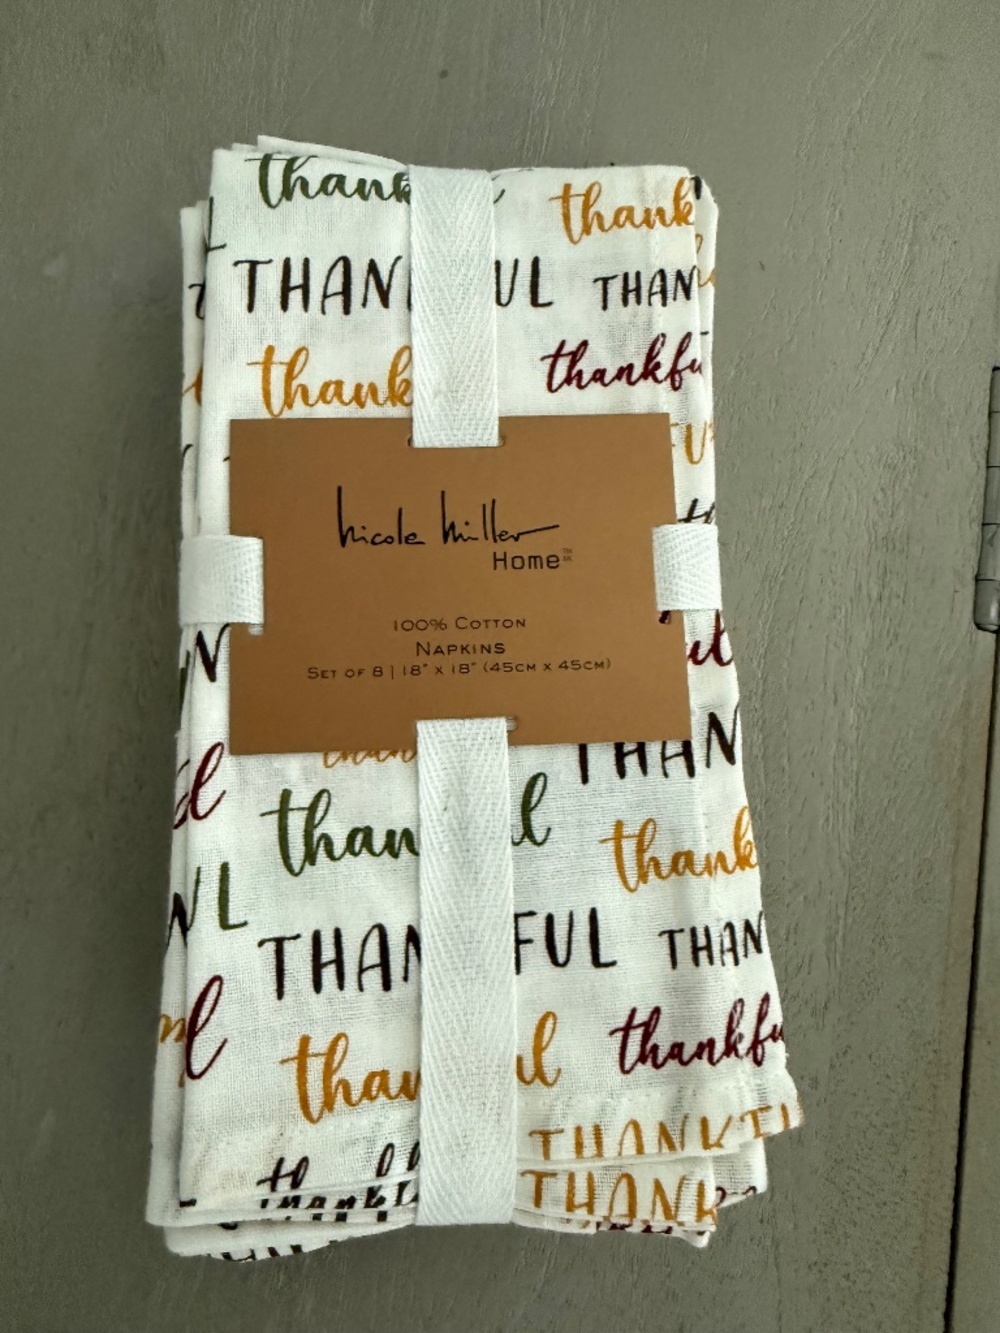 thank
thank
THAN UL THAN
thank
thankfu
nicole miller
Home™
100% COTTON
NAPKINS
SET OF 8 | 18" X 18" (45CM X 45CM)
ul
THAN
than l
thank
THAN FUL THAN
thankfu
than ul
THANKFU
THANK